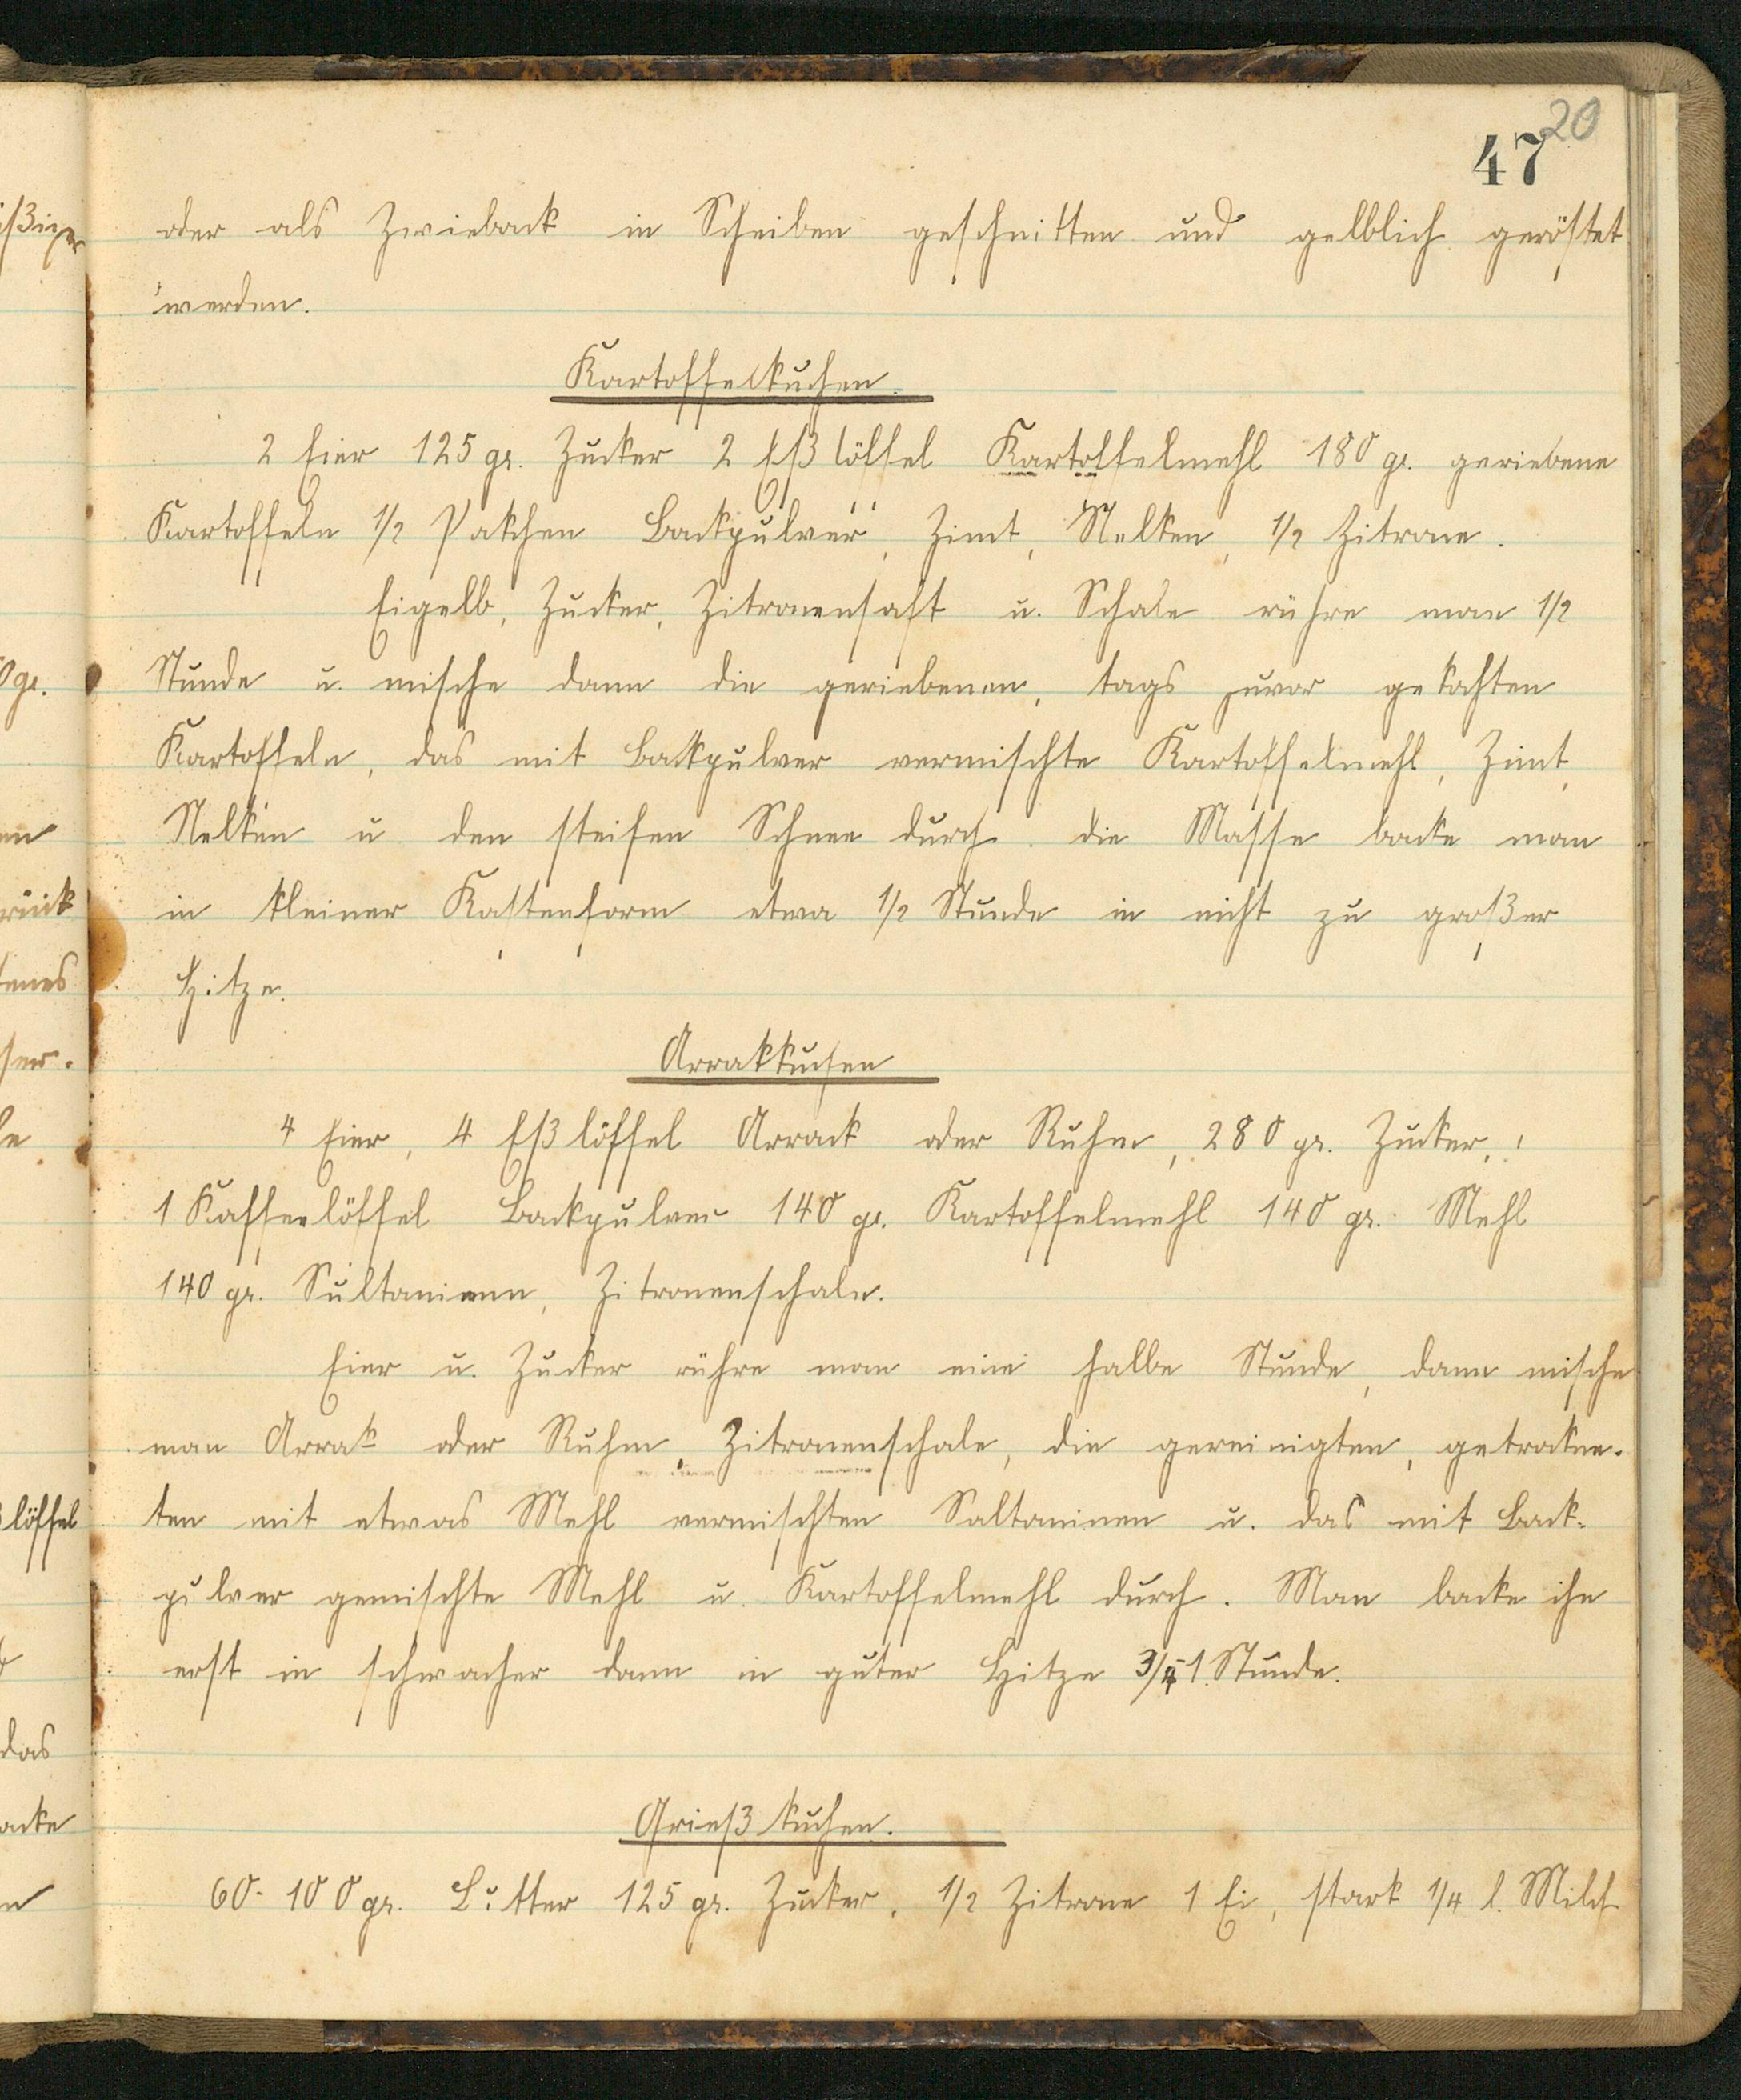 20
47
oder als Zwieback in Scheiben geschnitten und gelblich geröstet
werden.
Kartoffelkuchen.
2 Eier 125 gr. Zucker 2 Eßlöffel Kartoffelmehl 180 gr. geriebene
Kartoffeln 1/2 Pakchen Backpulver, Zimt, Nelken, 1/2 Zitrone.
Eigelb, Zucker, Zitronensaft u. Schale rühre man 1/2
Stunde u. mische dann die geriebenen, tags zuvor gekochten
Kartoffeln, das mit Backpulver vermischte Kartoffelmehl, Zimt,
Nelken u den steifen Schnee durch. die Masse backe man
in kleiner Kastenform etwa 1/2 Stunde in nicht zu großer
Hitze.
Arrakkuchen
4 Eier, 4 Eßlöffel Arrack oder Ruhm, 280 gr. Zucker,
1 Kaffeelöffel Backpulver 140 gr. Kartoffelmehl 140 gr. Mehl
140 gr. Sultaninen, Zitronenschale.
Eier u. Zucker rühre man eine halbe Stunde, dann mische
man Arrak oder Ruhm, Zitronenschale, die gereinigten, getrockne-
ten mit etwas Mehl vermischten Saltaninen u. das mit Back-
pulver gemischte Mehl u. Kartoffelmehl durch. Man backe ihn
erst in schwacher dann in guter Hitze 3/4-1 Stunde.
Grießkuchen.
60-100 gr. Butter 125 gr. Zucker, 1/2 Zitrone 1 Ei, stark 1/4 l. Milch